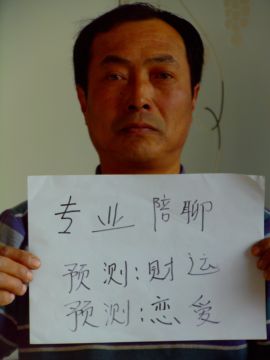 专业陪聊
预测:财运
预测:恋爱